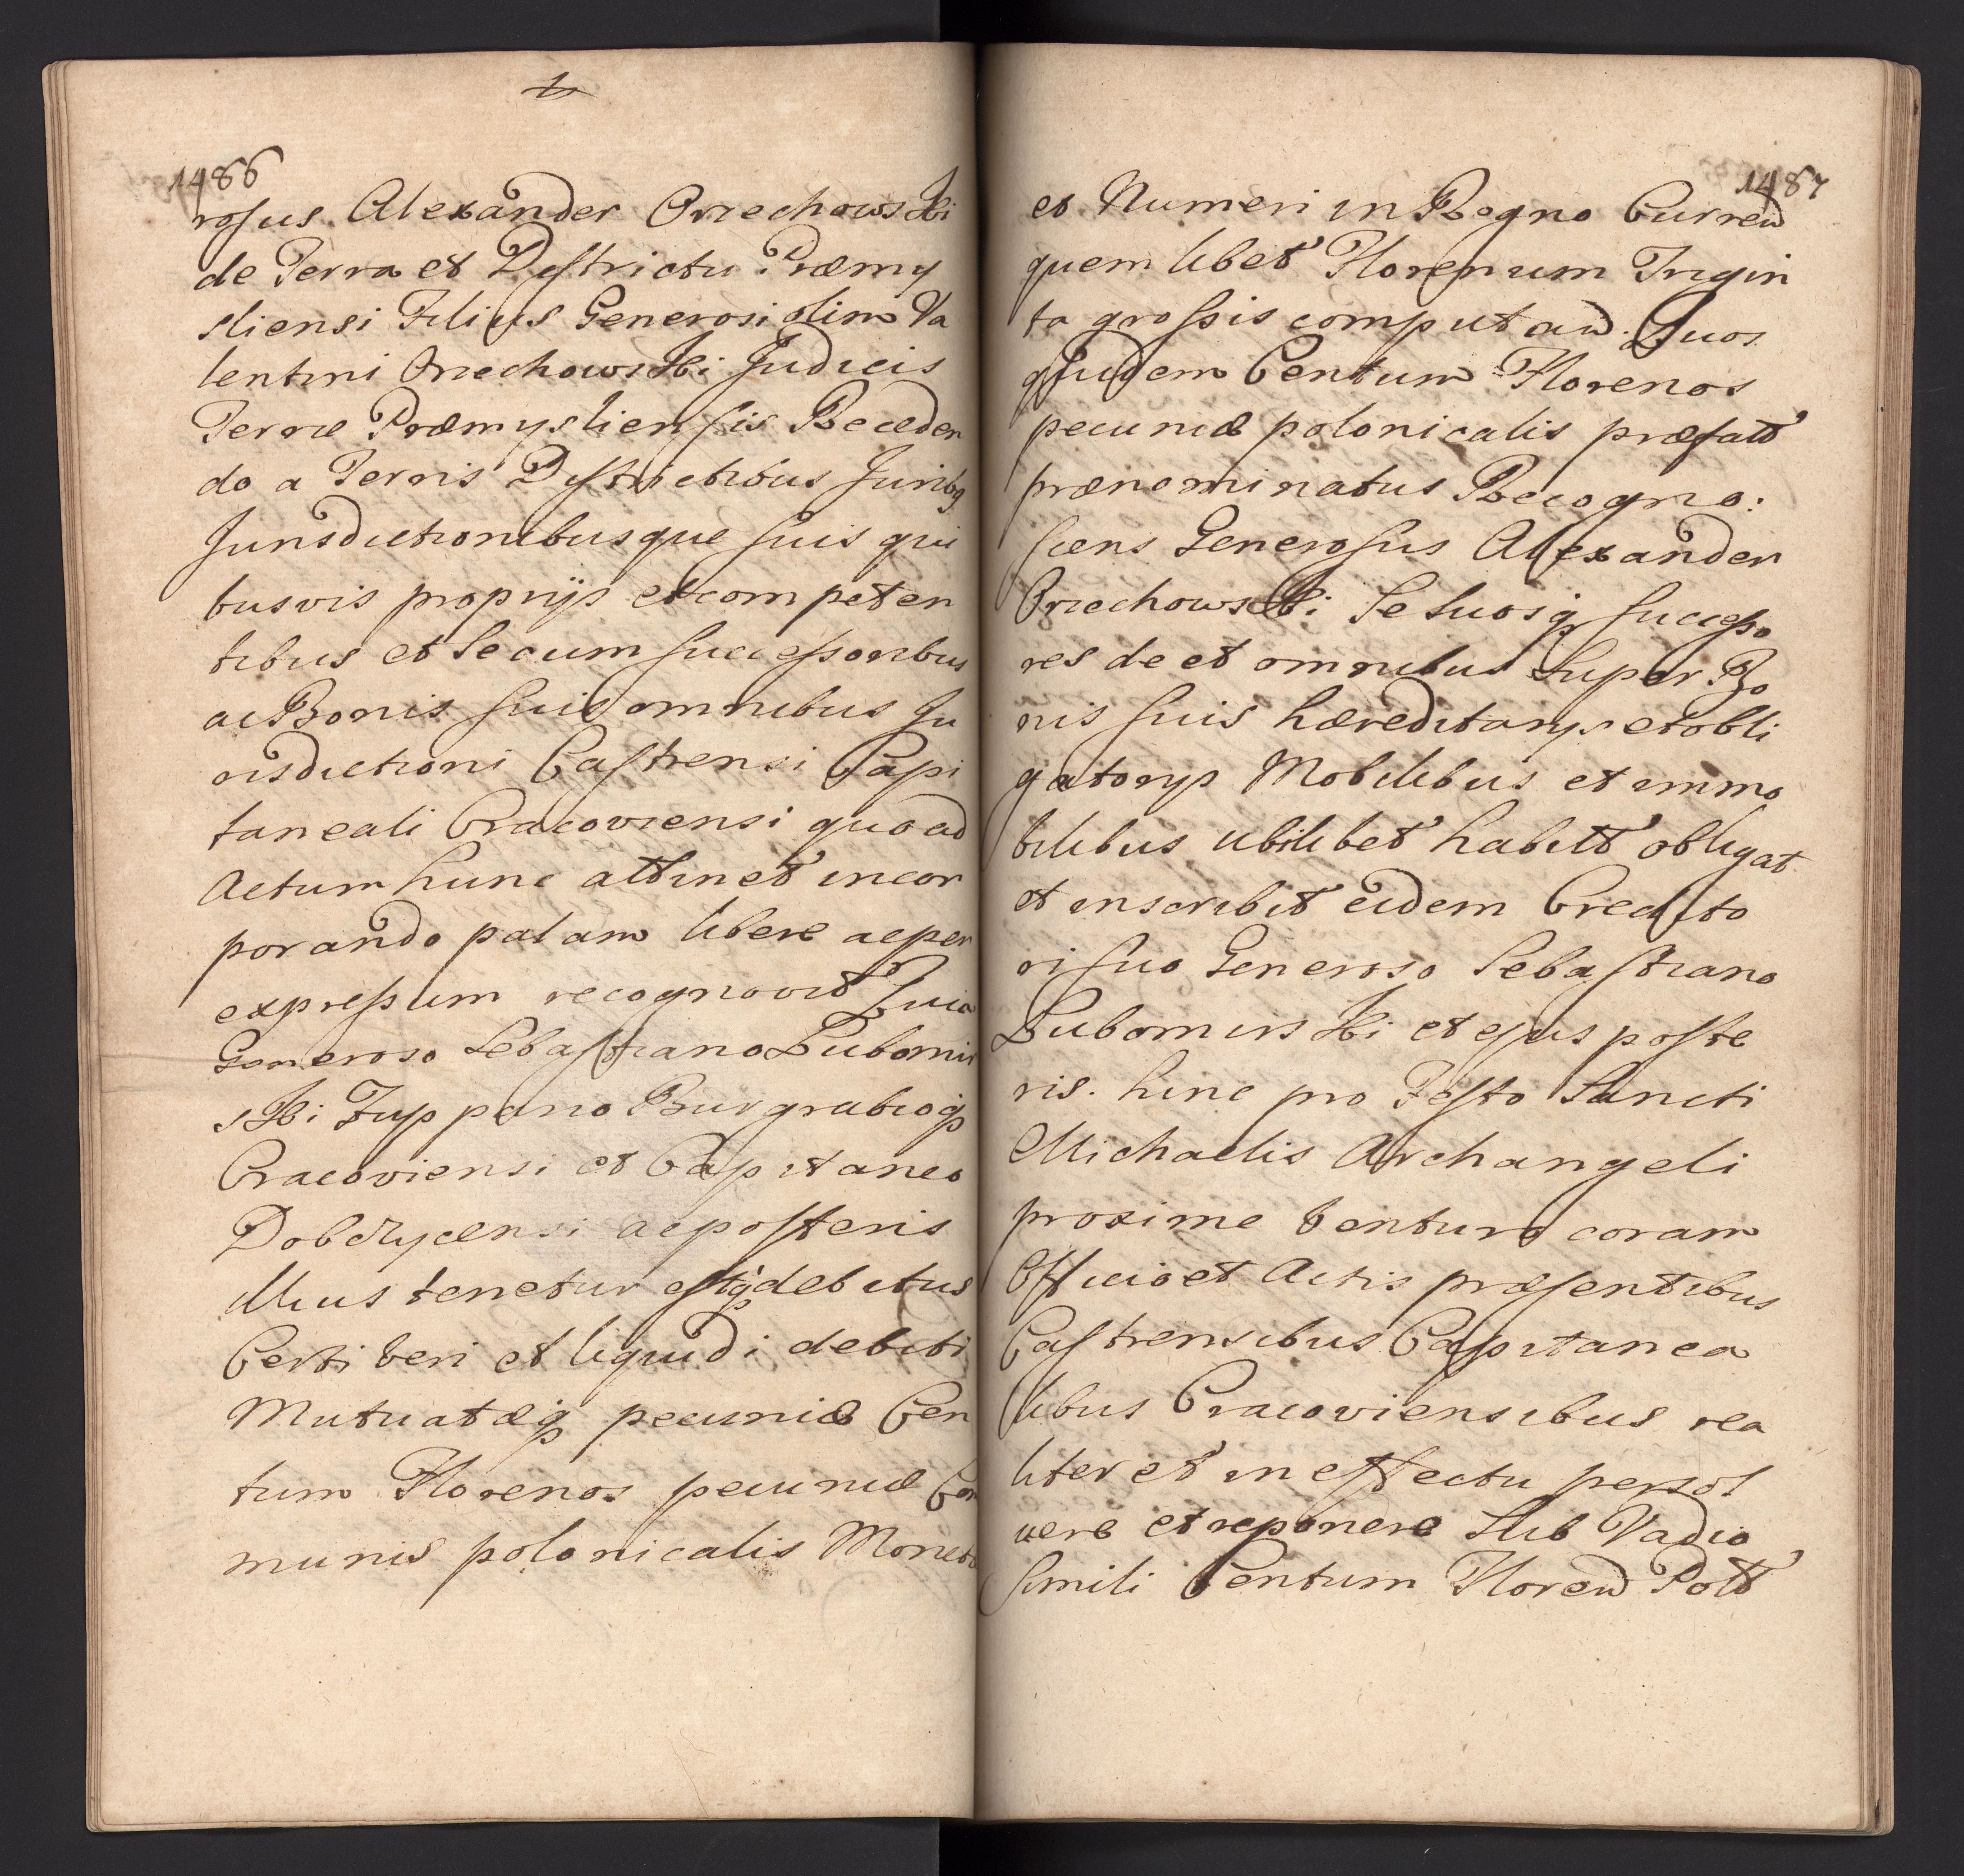 1486
rosus Alexander Orzechowski
de Terra et Dystrictu Præmy
sliensi Filius Generosi olim Va
lentini Orzechowski Judicis
Terræ Præmysliensis Receden
do a Terris Dystrictibus Juribq
Jurisdictionibusque suis qui
busvis proprijs et competen
tibus et Secum successoribus
ac Bonis suis omnibus Ju
risdictioni Castrensi Capi
taneali Cracoviensi quo ad
Actum hunc attinet incor
porando palam libere ac per
expressum recognovit Quia
Generoso Sebastiano Lubomir
ski Zuppario Burgrabioq
Cracoviensi et Capitaneo
Dobczycensi ac posteris
Illius tenetur estq debitus
Certi veri et liquidi debiti
Mutuatæq pecuniæ Cen
tum Florenos pecuniæ Com
munis polonicalis Monetæ
1487
et Numeri in Regno Curren
quem libet Florenum Trigin
ta grossis computan. Quos
quidem Centum Florenos
pecuniæ polonicalis præfatt
prænominatus Recogno:
scens Generosus Alexander
Orzechowski Se Suosq successo
res de et omnibus Super Bo
nis suis hæreditarijs et obli
gatorijs Mobilibus et immo
bilibus ubilibet habitt obligat
et inscribit eidem Credito
ri suo Generoso Sebastiano
Lubomirski et ejus poste
ris. hinc pro Festo Sancti
Michaelis Archangeli
proxime venturo coram
Officio et Actis præsentibus
Castrensibus Capitanea
libus Cracoviensibus rea
liter et in effectu persol
vere et reponere Sub Vadio
simili Centum Floren Poll